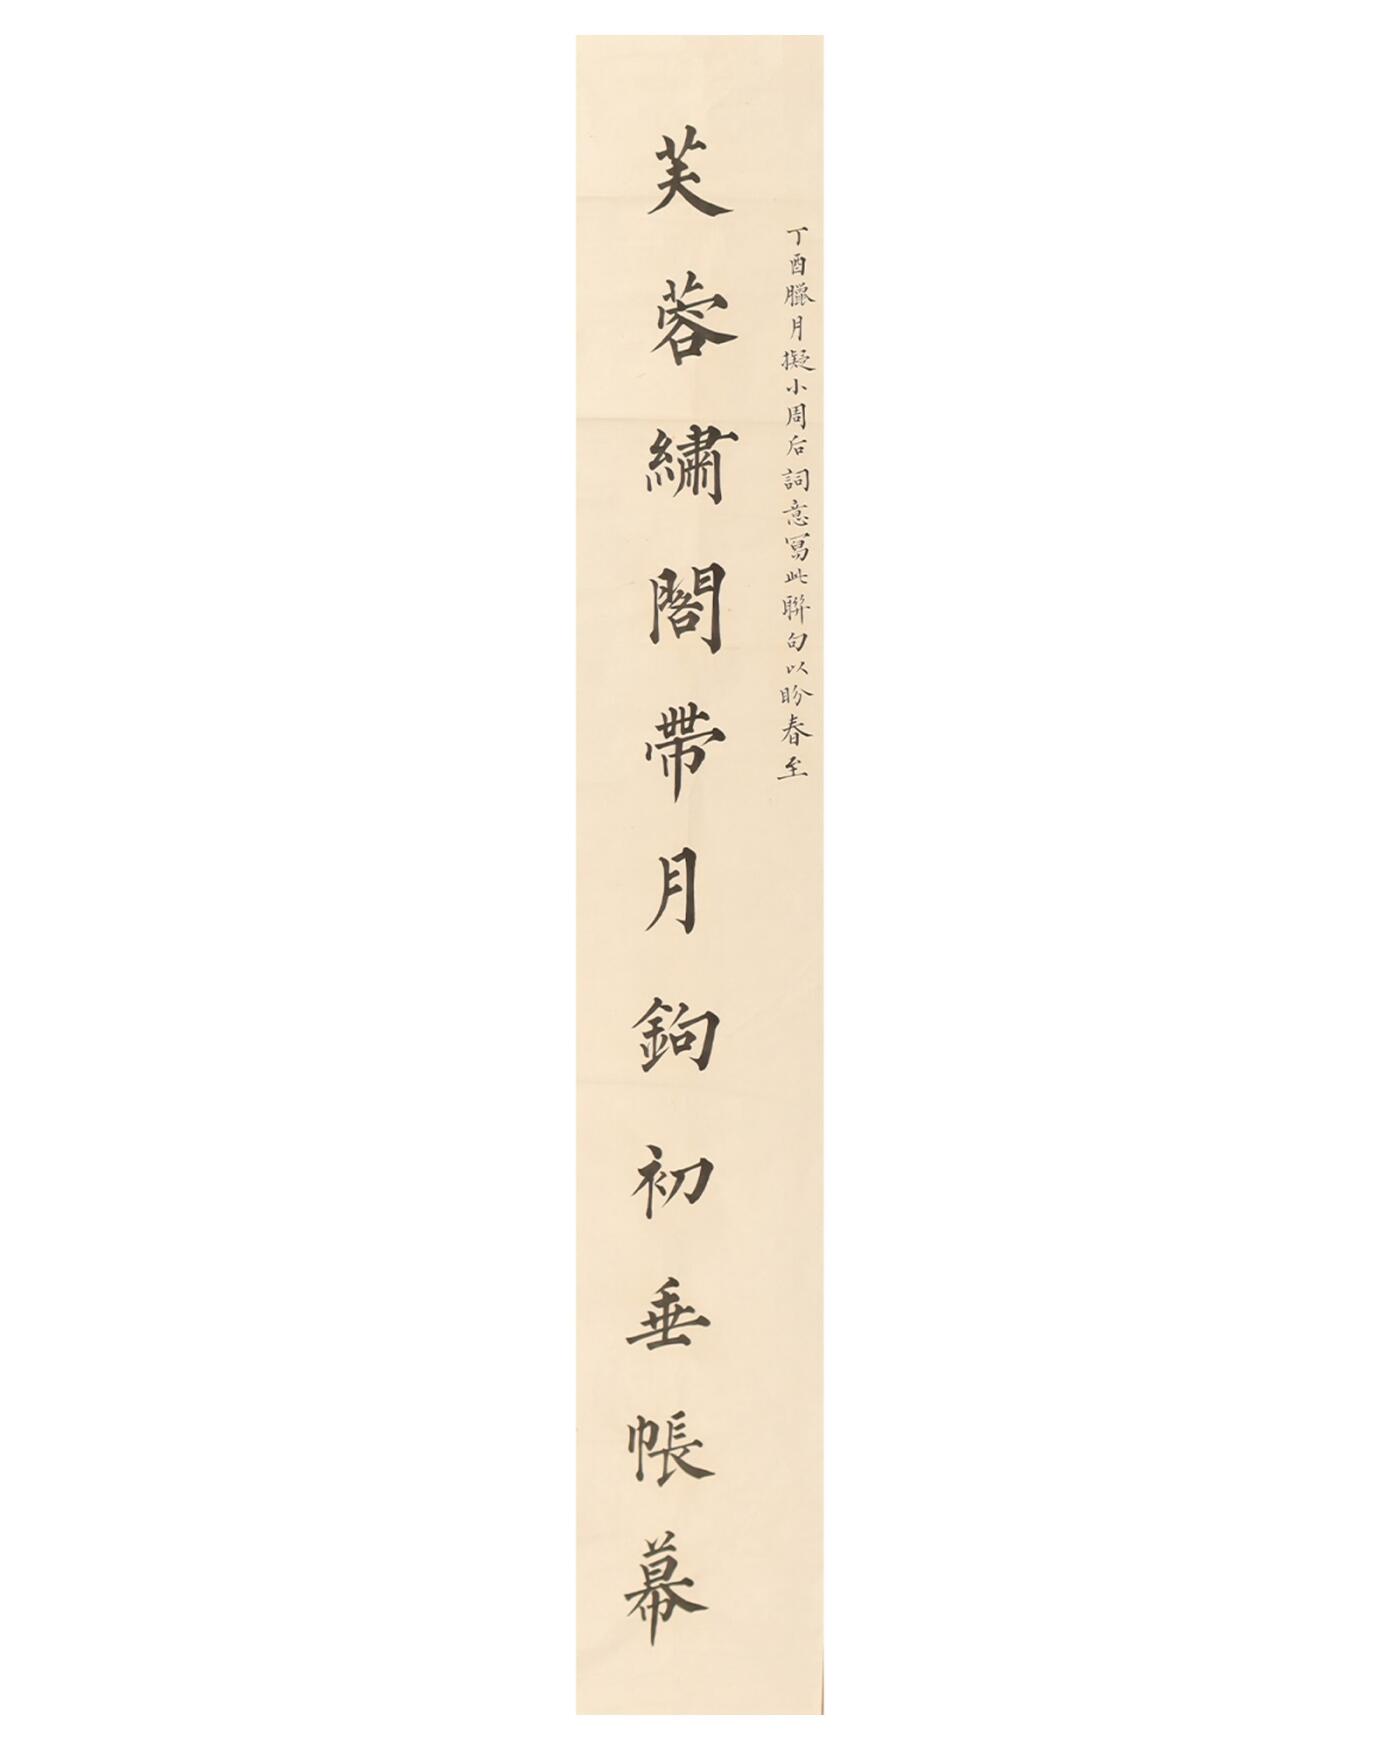 丁酉臘月擬小周后詞意寫此聯句以盼春至
芙蓉繡閣帶月鉤初垂帳幕